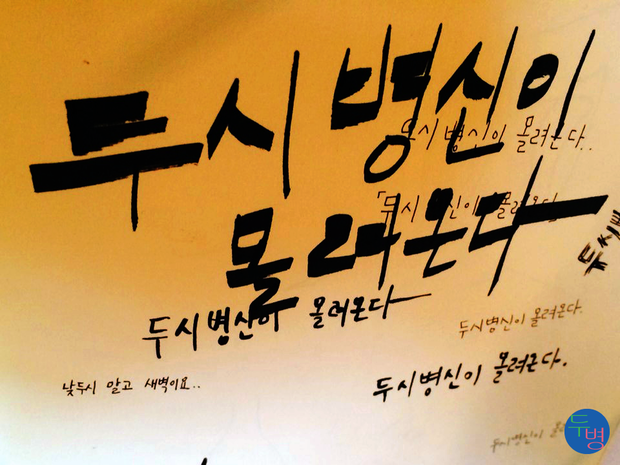 두시 병신이
두시 병신이 몰려온다..
몰려온다
「두시 신이 몰려온다
두시병신이 몰려온다
두시병신이 몰려온다.
낮두시 말고 새벽이요..
두시병신이 몰려온다.
두시병신이
두시
두병